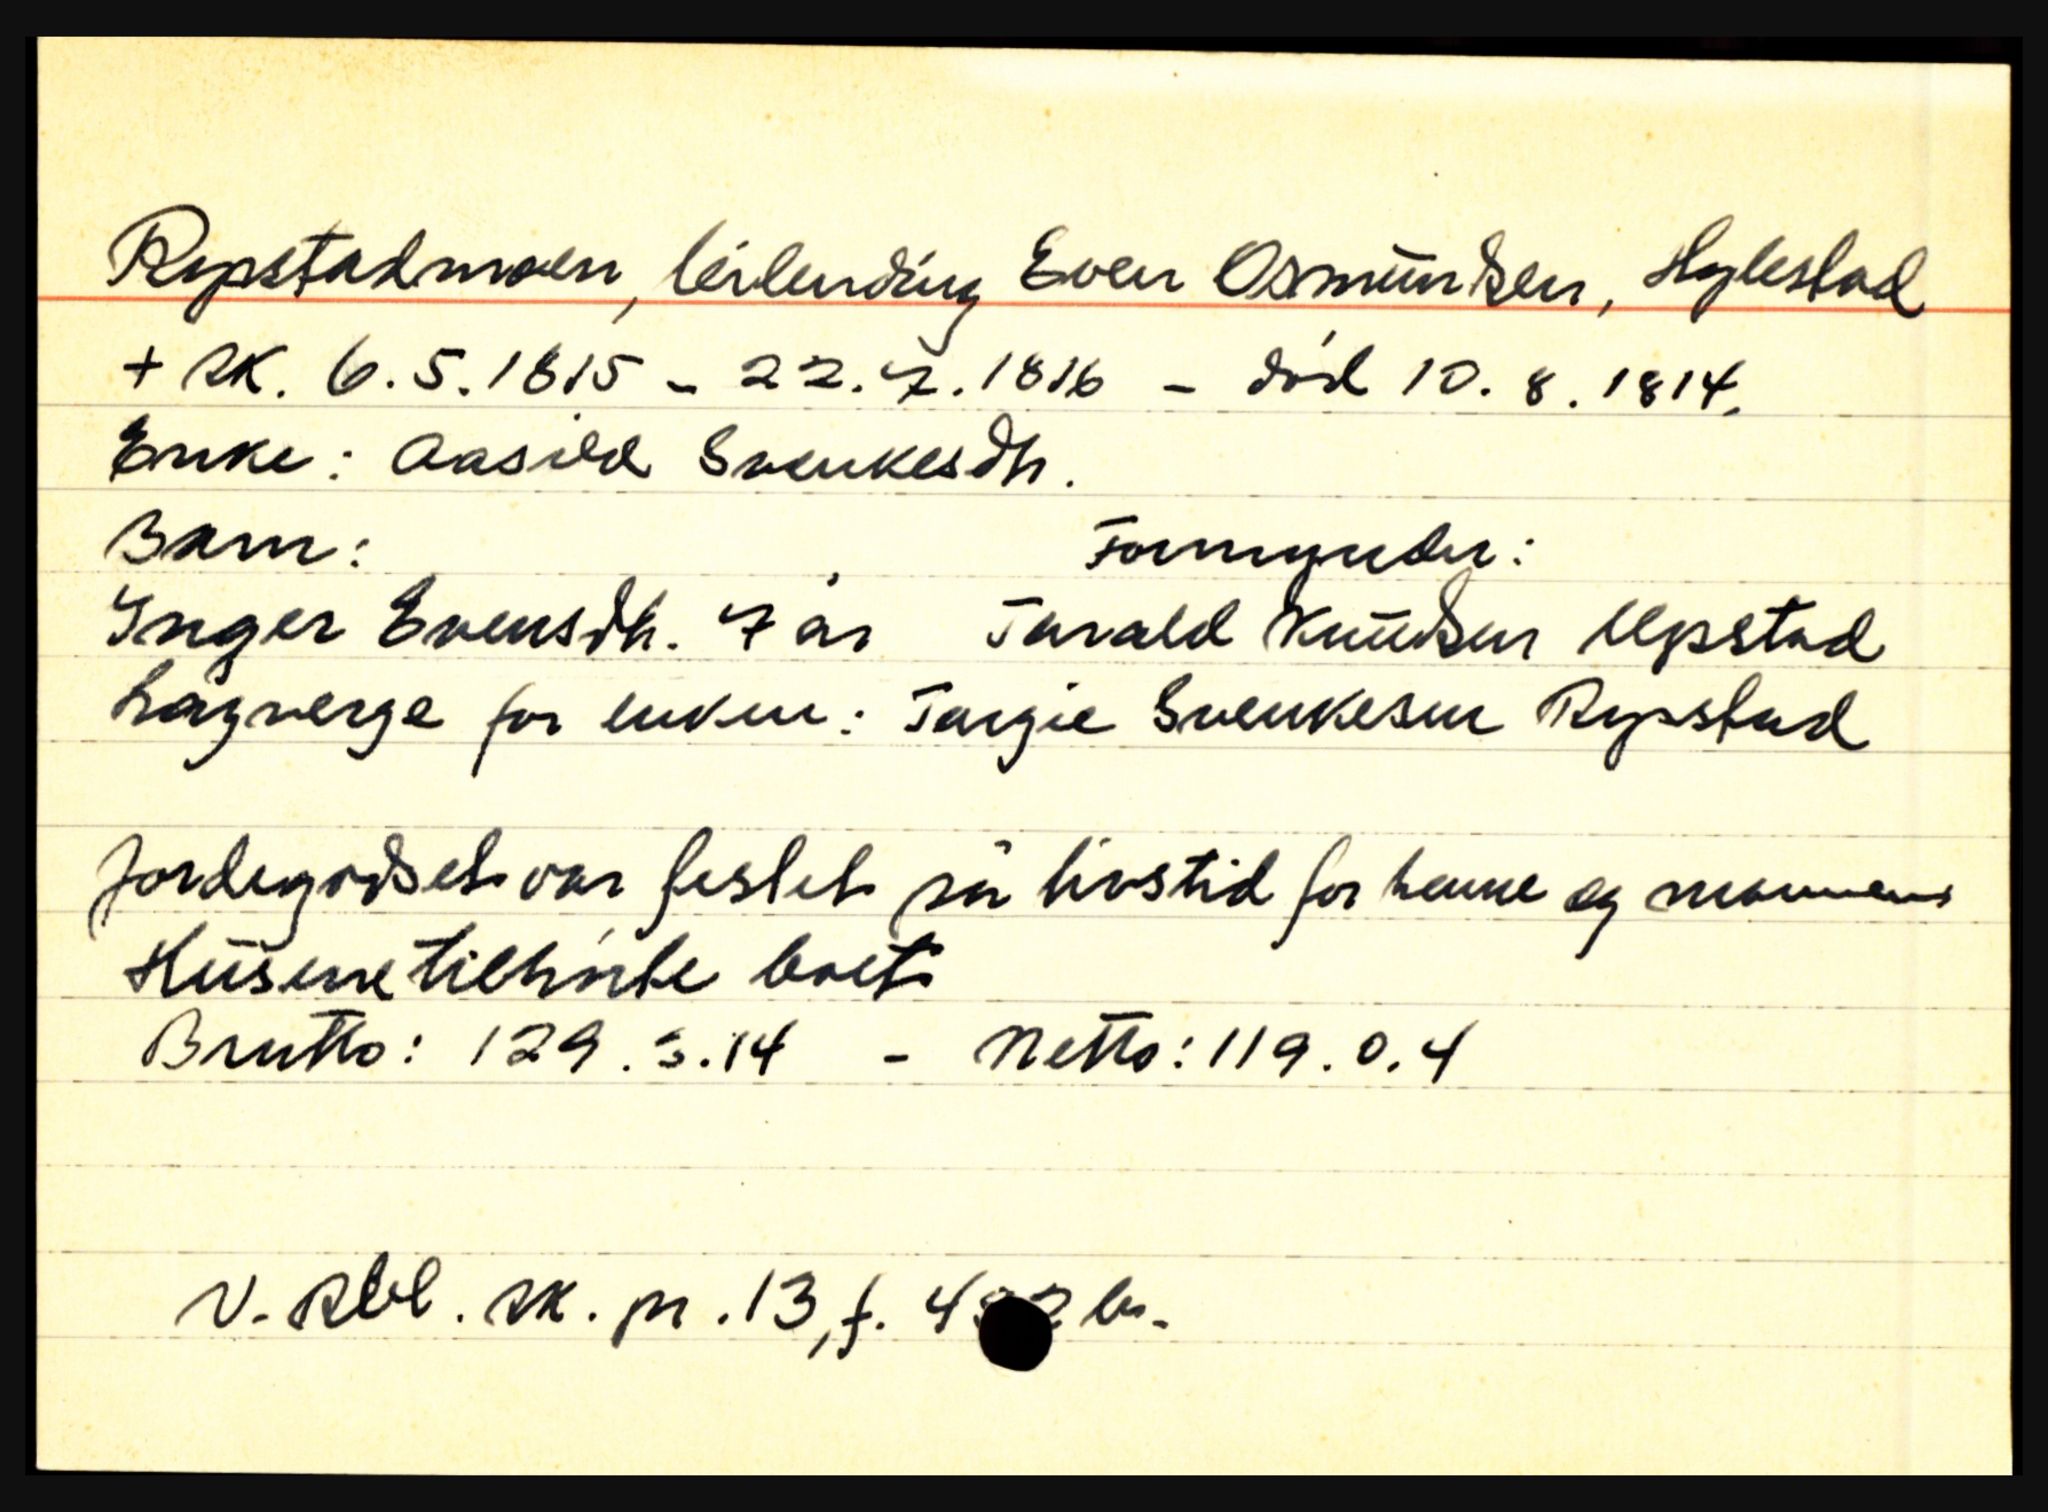 Rypstadmoen, leilending Even Osmundsen, Hylestad
+ SK. 6.5.1815 - 22.7.1816 - død 10.8.1814.
Enke: Aasild Svenkesdtr.
Barn: Formynder:
Inger Evensdtr. 7 år Tarald Knudsen Upstad
Lagverge for enken: Targie Svenkesen Rypstad
Jordegodset var festet på livstid for henne og mannen
Husene tilhørte boet
Brutto: 129.3.14 - Netto: 119.0.4
V. Rbl. SK. pr. 13, f.